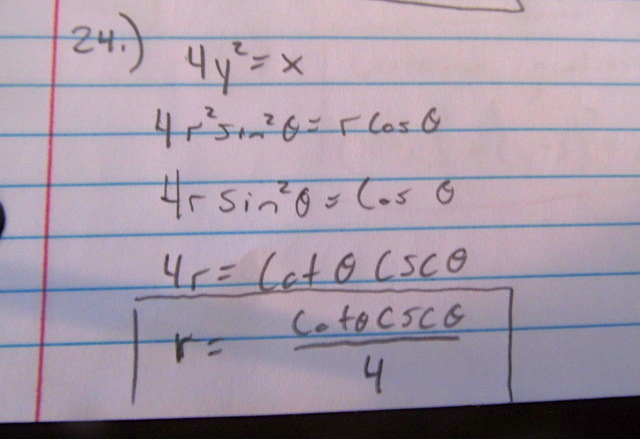 24.) 4y² = x
4r² sin² θ = r Cos θ
4r sin² θ = Cos θ
4r = Cot θ CSC θ
r = Cot θ CSC θ / 4